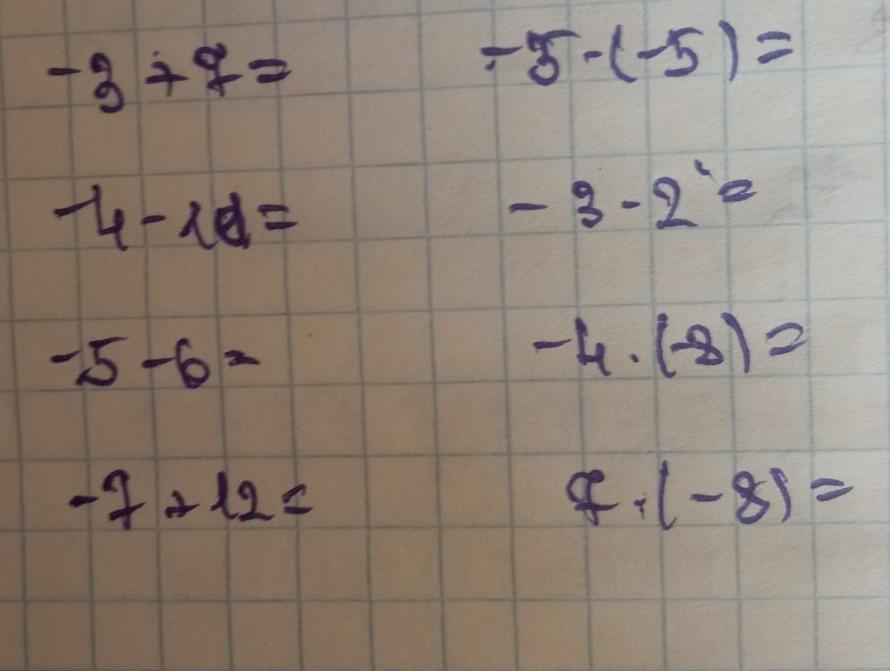 -3+7=
-5-(-5)=
-4-10=
-3-2=
-5-6=
-4·(-8)=
-7+12=
7·(-8)=